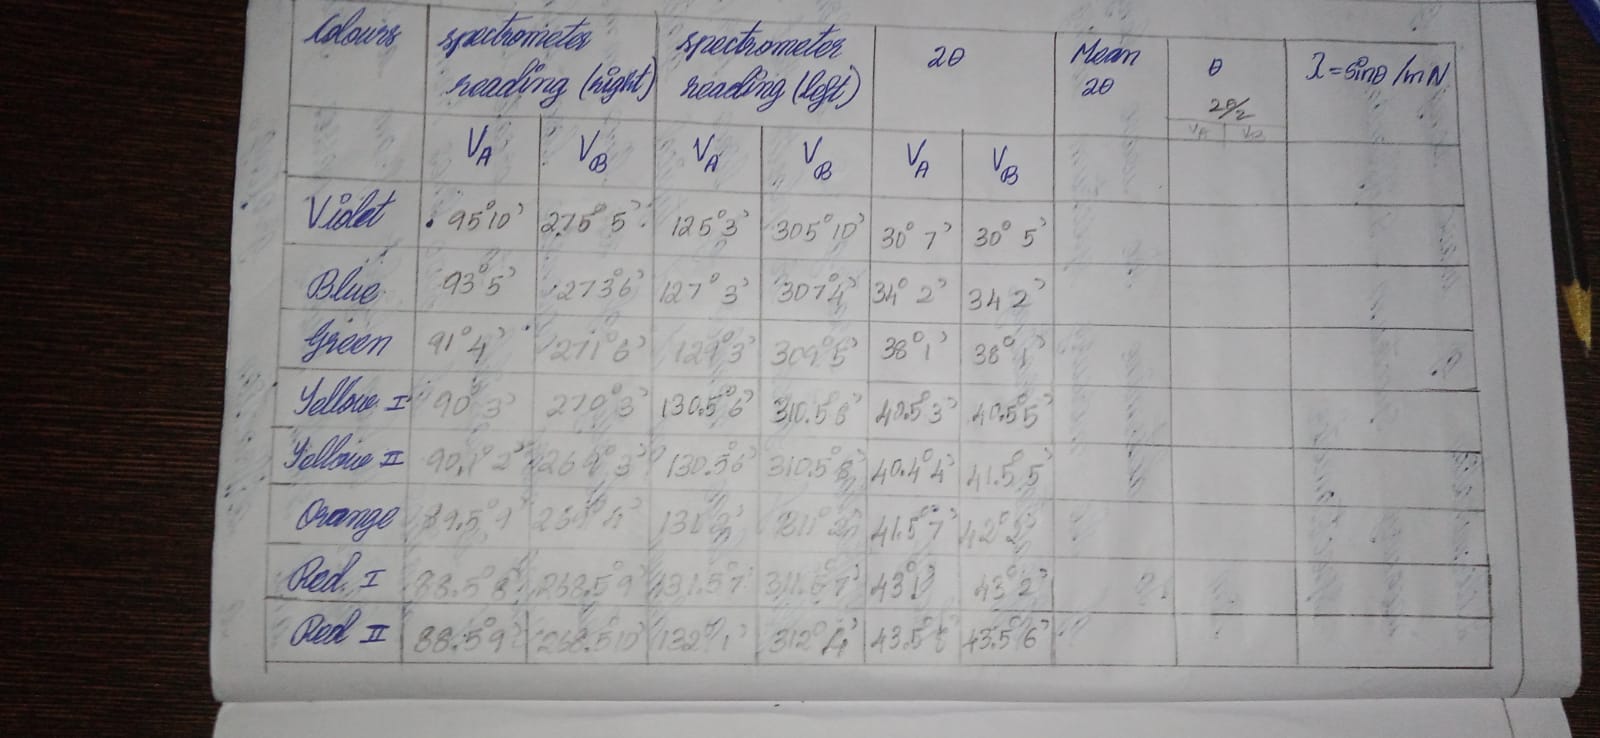 Colours spectrometer reading (right) spectrometer reading (left) 2θ Mean 2θ θ 2θ/2 λ = sinθ/mN
V_A V_B V_A V_B V_A V_B V_A V_B
Violet 95°10' 275° 5' 125°3' 305°10' 30° 7' 30° 5'
Blue 93°5' 273°6' 127° 3' 307°4' 34° 2' 34 2'
Green 91°4' 271°6' 129°3' 309°5' 38°1' 38°1'
Yellow I 90°3' 270°3' 130.5°6' 310.5°8' 40.5°3' 40.5°5'
Yellow II 90.1°2' 269°3' 130.5°6' 310.5°8' 40.4°4' 41.5°5'
Orange 89.5° 131° 311°2' 41.5°7' 42°2'
Red I 88.5°8' 268.5°9' 131.5°7' 311.5°7' 43°1' 43°2'
Red II 88.5°9' 268.5°10' 132°1' 312°4' 43.5° 43.5°6'